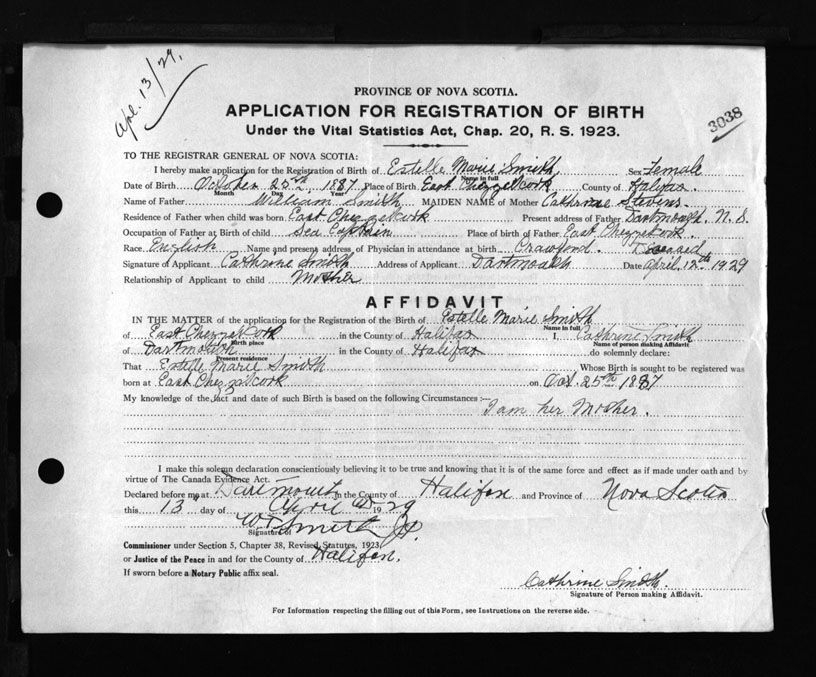 Apl. 13/29.
3038
PROVINCE OF NOVA SCOTIA.
APPLICATION FOR REGISTRATION OF BIRTH
Under the Vital Statistics Act, Chap. 20, R. S. 1923.
TO THE REGISTRAR GENERAL OF NOVA SCOTIA:
I hereby make application for the Registration of Birth of Estelle Marie Smith Sex Female
Name in full
Date of Birth October 25th 1887 Place of Birth East Chezzetcook County of Halifax
Month Day Year
Name of Father William Smith MAIDEN NAME of Mother Cathrine Stevens
Residence of Father when child was born East Chezzetcook Present address of Father Dartmouth. N. S.
Occupation of Father at Birth of child Sea Captain Place of birth of Father East Chezzetcook.
Race English Name and present address of Physician in attendance at birth Crawford. Deceased
Signature of Applicant Cathrine Smith Address of Applicant Dartmouth Date April. 12th 1929
Relationship of Applicant to child Mother
AFFIDAVIT
IN THE MATTER of the application for the Registration of the Birth of Estelle Marie Smith
Name in full
of East Chezzetcook in the County of Halifax I, Cathrine Smith
Birth place Name of person making Affidavit
of Dartmouth in the County of Halifax do solemnly declare:
Present residence
That Estelle Marie Smith Whose Birth is sought to be registered was
born at East Chezzetcook on Oct. 25th 1887
My knowledge of the fact and date of such Birth is based on the following Circumstances :—
I am her Mother.
I make this solemn declaration conscientiously believing it to be true and knowing that it is of the same force and effect as if made under oath and by
virtue of The Canada Evidence Act.
Declared before me at Dartmouth in the County of Halifax and Province of Nova Scotia
this 13 day of April AD 1929
W T Smith J.P.
Signature of
Commissioner under Section 5, Chapter 38, Revised Statutes, 1923
or Justice of the Peace in and for the County of Halifax.
If sworn before a Notary Public affix seal.
Cathrine Smith.
Signature of Person making Affidavit.
For Information respecting the filling out of this Form, see Instructions on the reverse side.